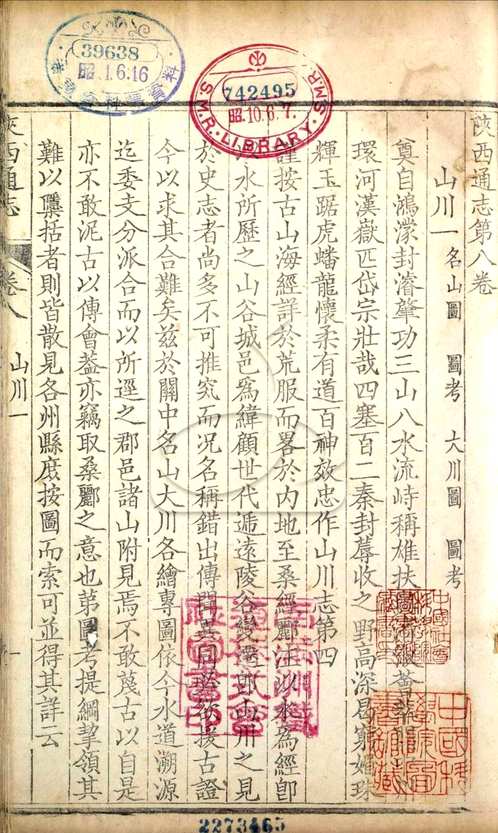 39638
昭 1.6.16
742495
昭 10.6.7
S.M.R. LIBRARY
陜西通志第八卷
山川一 名山圖 圖考 大川圖 圖考
奠自鴻濛封濬肇功三山八水流峙稱雄扶
環河漢嶽匹岱宗壯哉四塞百二秦封蓐收之野高深曷窮媚珠
輝玉踞虎蟠龍懷柔有道百神效忠作山川志第四
謹按古山海經詳於荒服而畧於內地至桑經酈注以水爲經卽
水所歷之山谷城邑爲緯顧世代遞遠陵谷變遷郎山川之見
於史志者尚多不可推究而况名稱錯出傳聞異同必欲援古證
今以求其合難矣茲於關中名山大川各繪專圖依今水道溯源
迄委支分派合而以所逕之郡邑諸山附見焉不敢蔑古以自是
亦不敢泥古以傳會葢亦竊取桑酈之意也第圖考提綱挈領其
難以檃括者則皆散見各州縣庶按圖而索可並得其詳云
陜西通志
卷八 山川一
一
2273465